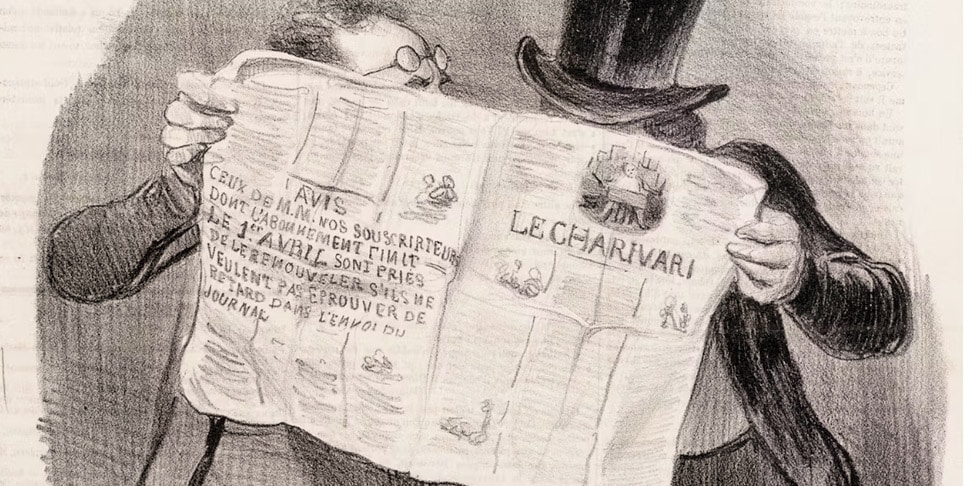 AVIS
CEUX DE M.M. NOS SOUSCRIPTEURS
DONT L'ABONNEMENT FINIT
LE 1ER AVRIL SONT PRIÉS
DE LE RENOUVELER S'ILS NE
VEULENT PAS ÉPROUVER DE
RETARD DANS L'ENVOI DU
JOURNAL
LE CHARIVARI